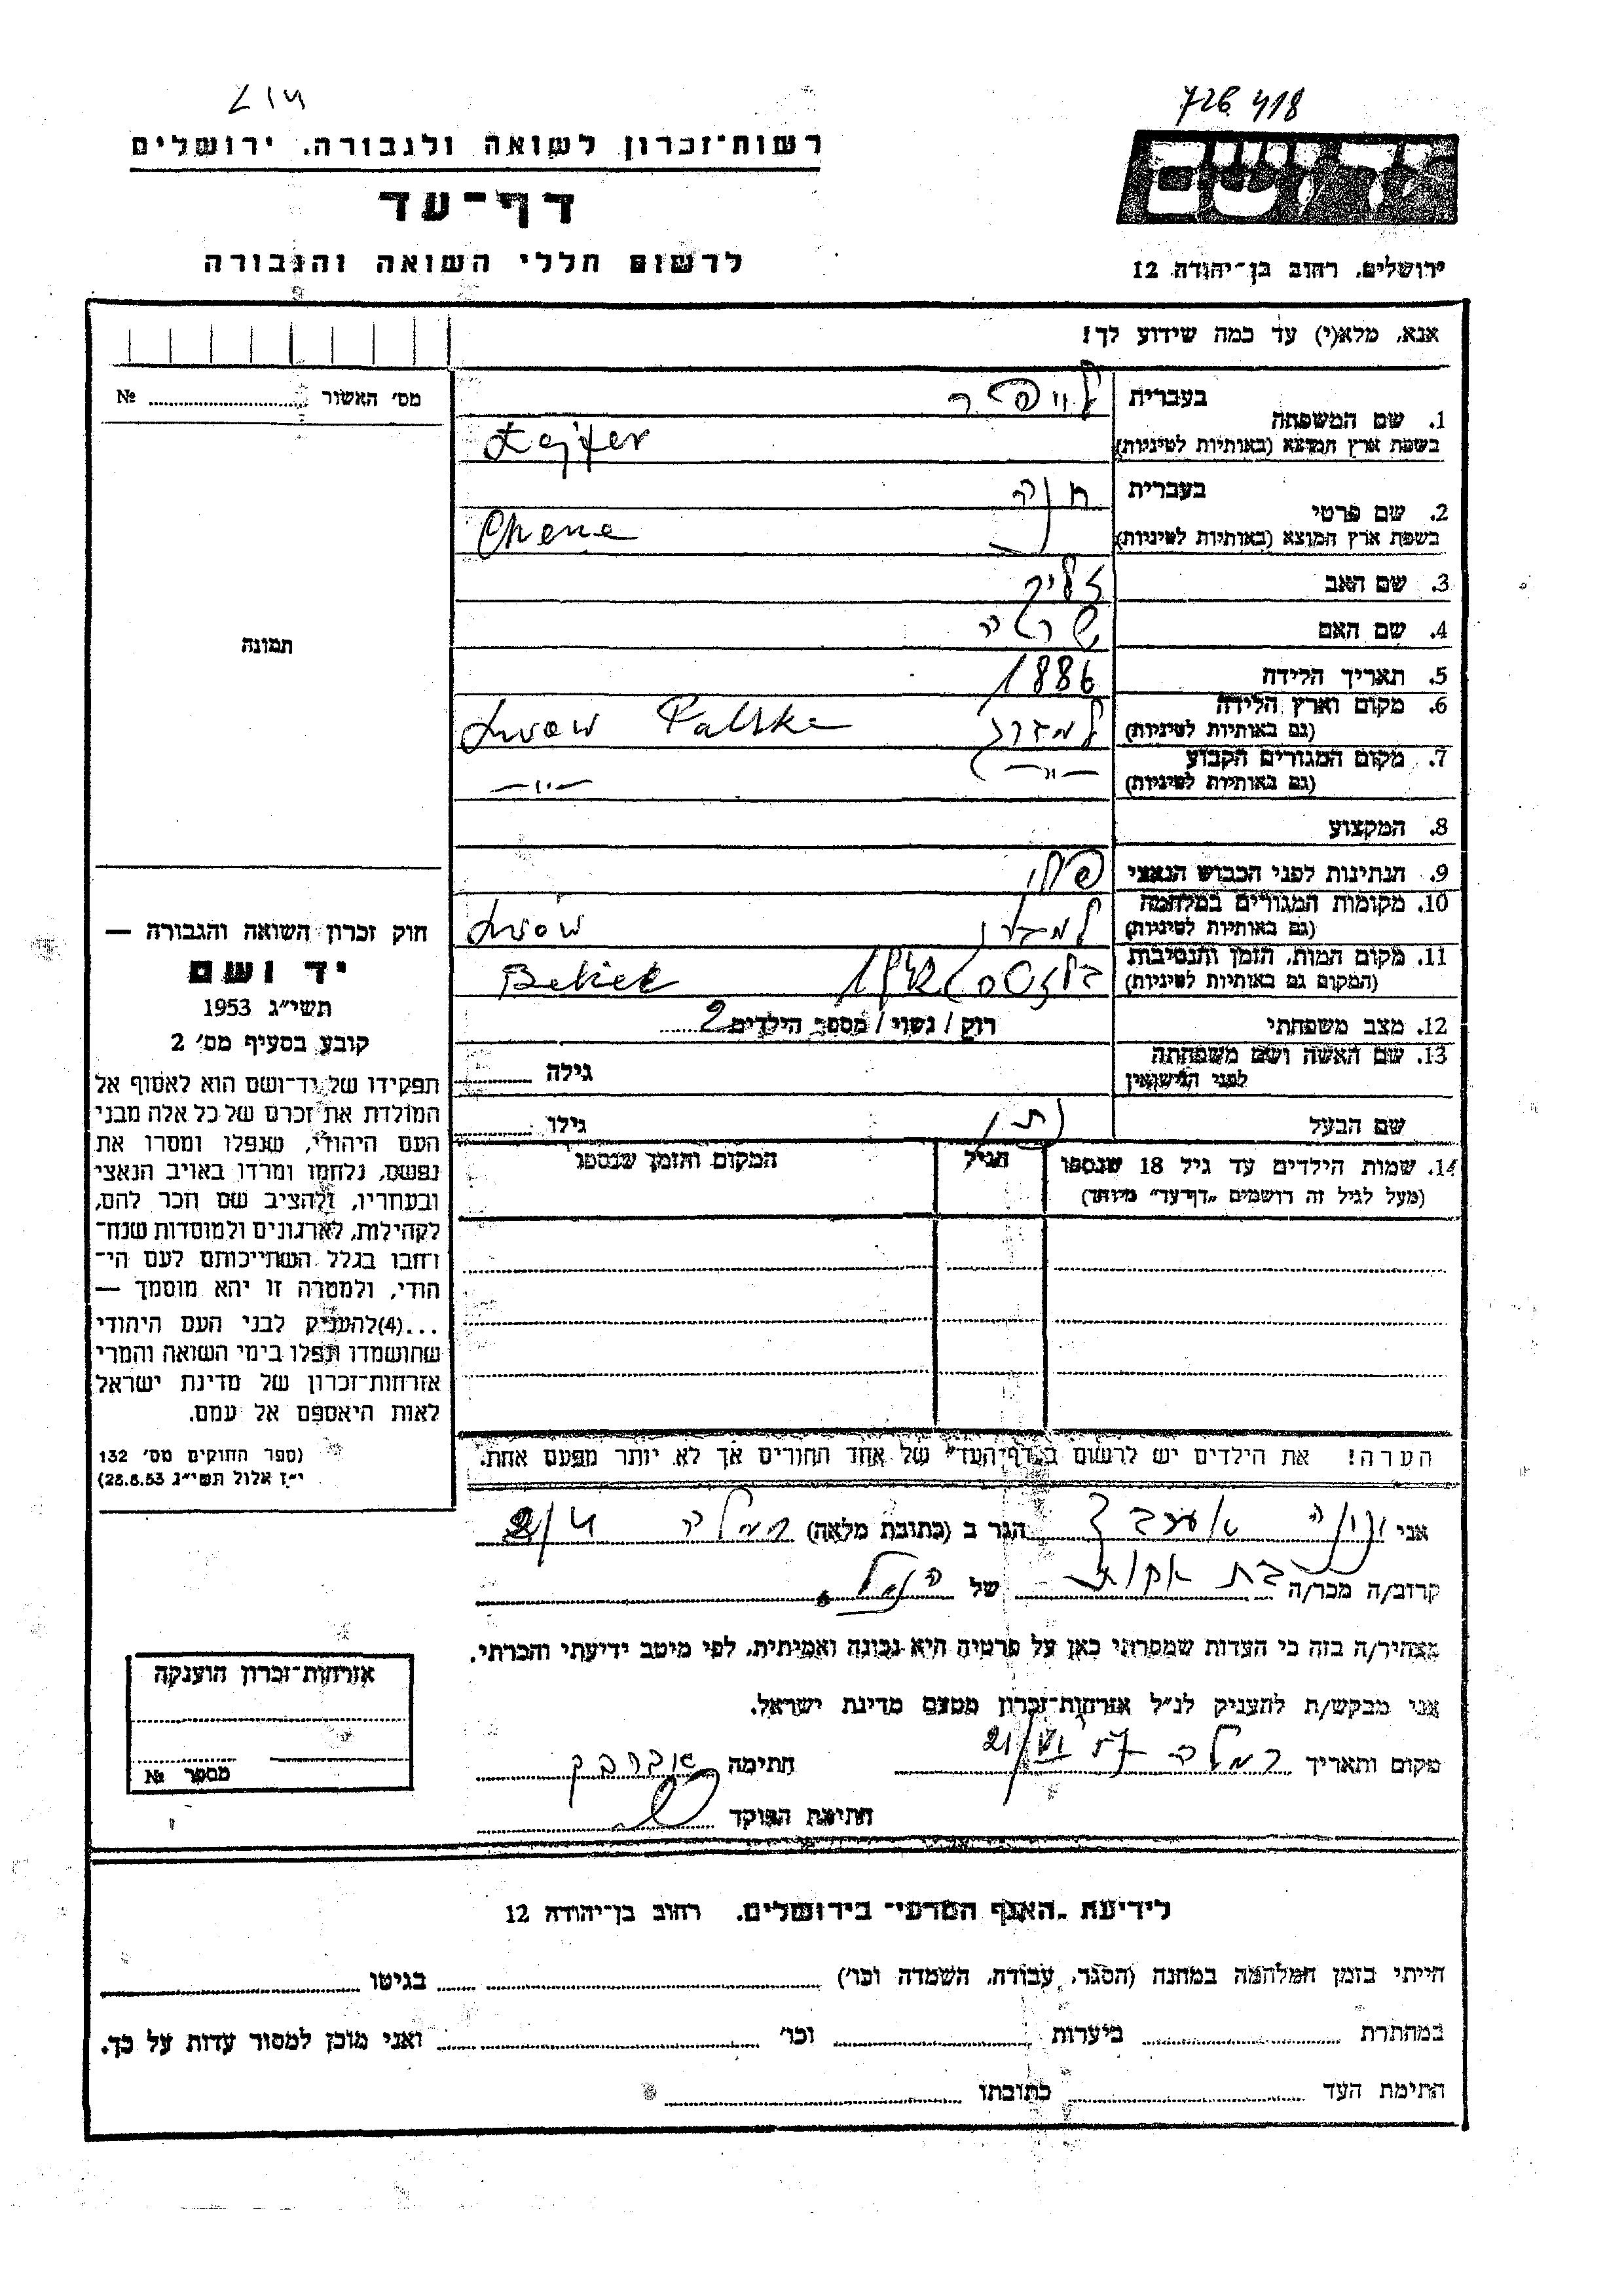 726 418
רשות־זכרון לשואה ולגבורה, ירושלים
דף־עד
לרשום חללי השואה והגבורה
ירושלים, רחוב בן־יהודה 12
אנא, מלא(י) עד כמה שידוע לך!
מס' האשור № 
1. שם המשפחה בעברית
בשפת ארץ המוצא (באותיות לטיניות) Lajfer
2. שם פרטי בעברית חנה
בשפת ארץ המוצא (באותיות לטיניות) Chene
3. שם האב זליק
4. שם האם שרה
5. תאריך הלידה 1886
6. מקום וארץ הלידה
(גם באותיות לטיניות) Lwow Polska
7. מקום המגורים הקבוע
(גם באותיות לטיניות) —״— —״—
8. המקצוע
9. הנתינות לפני הכבוש הנאצי
10. מקומות המגורים במלחמה
(גם באותיות לטיניות) Lwow
11. מקום המות, הזמן והנסיבות
(המקום גם באותיות לטיניות)
12. מצב משפחתי רוק / נשוי / מספר הילדים 2
13. שם האשה ושם משפחתה
לפני הנישואין גילה
שם הבעל נתן גילו
14. שמות הילדים עד גיל 18 שנספו הגיל המקום והזמן שנספו
(מעל לגיל זה רושמים „דף־עד" מיוחד)
הערה! את הילדים יש לרשום ב„דף־העד" של אחד ההורים אך לא יותר מפעם אחת.
תמונה
חוק זכרון השואה והגבורה —
יד ושם
תשי"ג 1953
קובע בסעיף מס' 2
תפקידו של יד־ושם הוא לאסוף אל
המולדת את זכרם של כל אלה מבני
העם היהודי, שנפלו ומסרו את
נפשם, נלחמו ומרדו באויב הנאצי
ובעוזריו, ולהציב שם וזכר להם,
לקהילות, לארגונים ולמוסדות שנח־
רחבו בגלל השתייכותם לעם הי־
הודי, ולמטרה זו יהא מוסמך —
...(4)להעניק לבני העם היהודי
שהושמדו ונפלו בימי השואה והמרי
אזרחות־זכרון של מדינת ישראל
לאות היאספם אל עמם.
(ספר החוקים מס' 132
י"ז אלול תשי"ג 28.8.53)
אני הגר ב (כתובת מלאה) רמלה
קרוב/ה מכר/ה בת אחות של הנ"ל
מצהיר/ה בזה כי העדות שמסרתי כאן על פרטיה היא נכונה ואמיתית, לפי מיטב ידיעתי והכרתי.
אני מבקש/ת להעניק לנ"ל אזרחות־זכרון מטעם מדינת ישראל.
מקום ותאריך רמלה 21/VI 57 חתימה
חתימת הפוקד
אזרחות־זכרון הוענקה
מספר №
לידיעת „האגף המדעי" בירושלים, רחוב בן־יהודה 12
הייתי בזמן המלחמה במחנה (הסגר, עבודה, השמדה וכו') בגיטו
במחתרת ביערות וכו' ואני מוכן למסור עדות על כך.
חתימת העד כתובתו